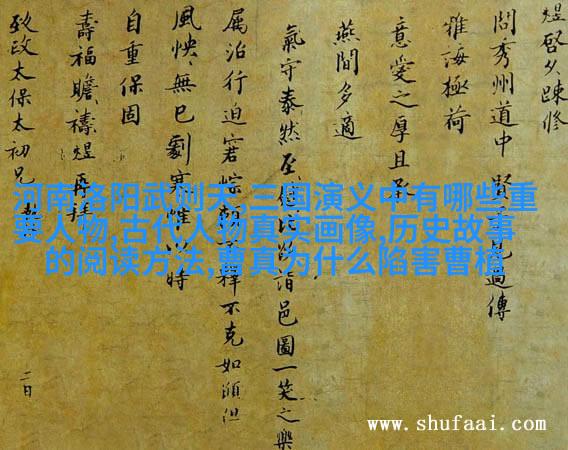 河南洛阳武则天,三国演义中有哪些重
要人物,古代人物真实画像,历史故事
的阅读方法,曹真为什么陷害曹植
煜啓久疎修
問秀州道中
雅海極荷
意愛之厚且承
燕閒多適
氣守泰然至 邑圖一笑之樂
屬治行迫窘 不克如 但
風怏無已劇寒惟以時
自重保固
壽福瞻禱煜再拜
致政太保太初兄
二日
www.shufaai.com